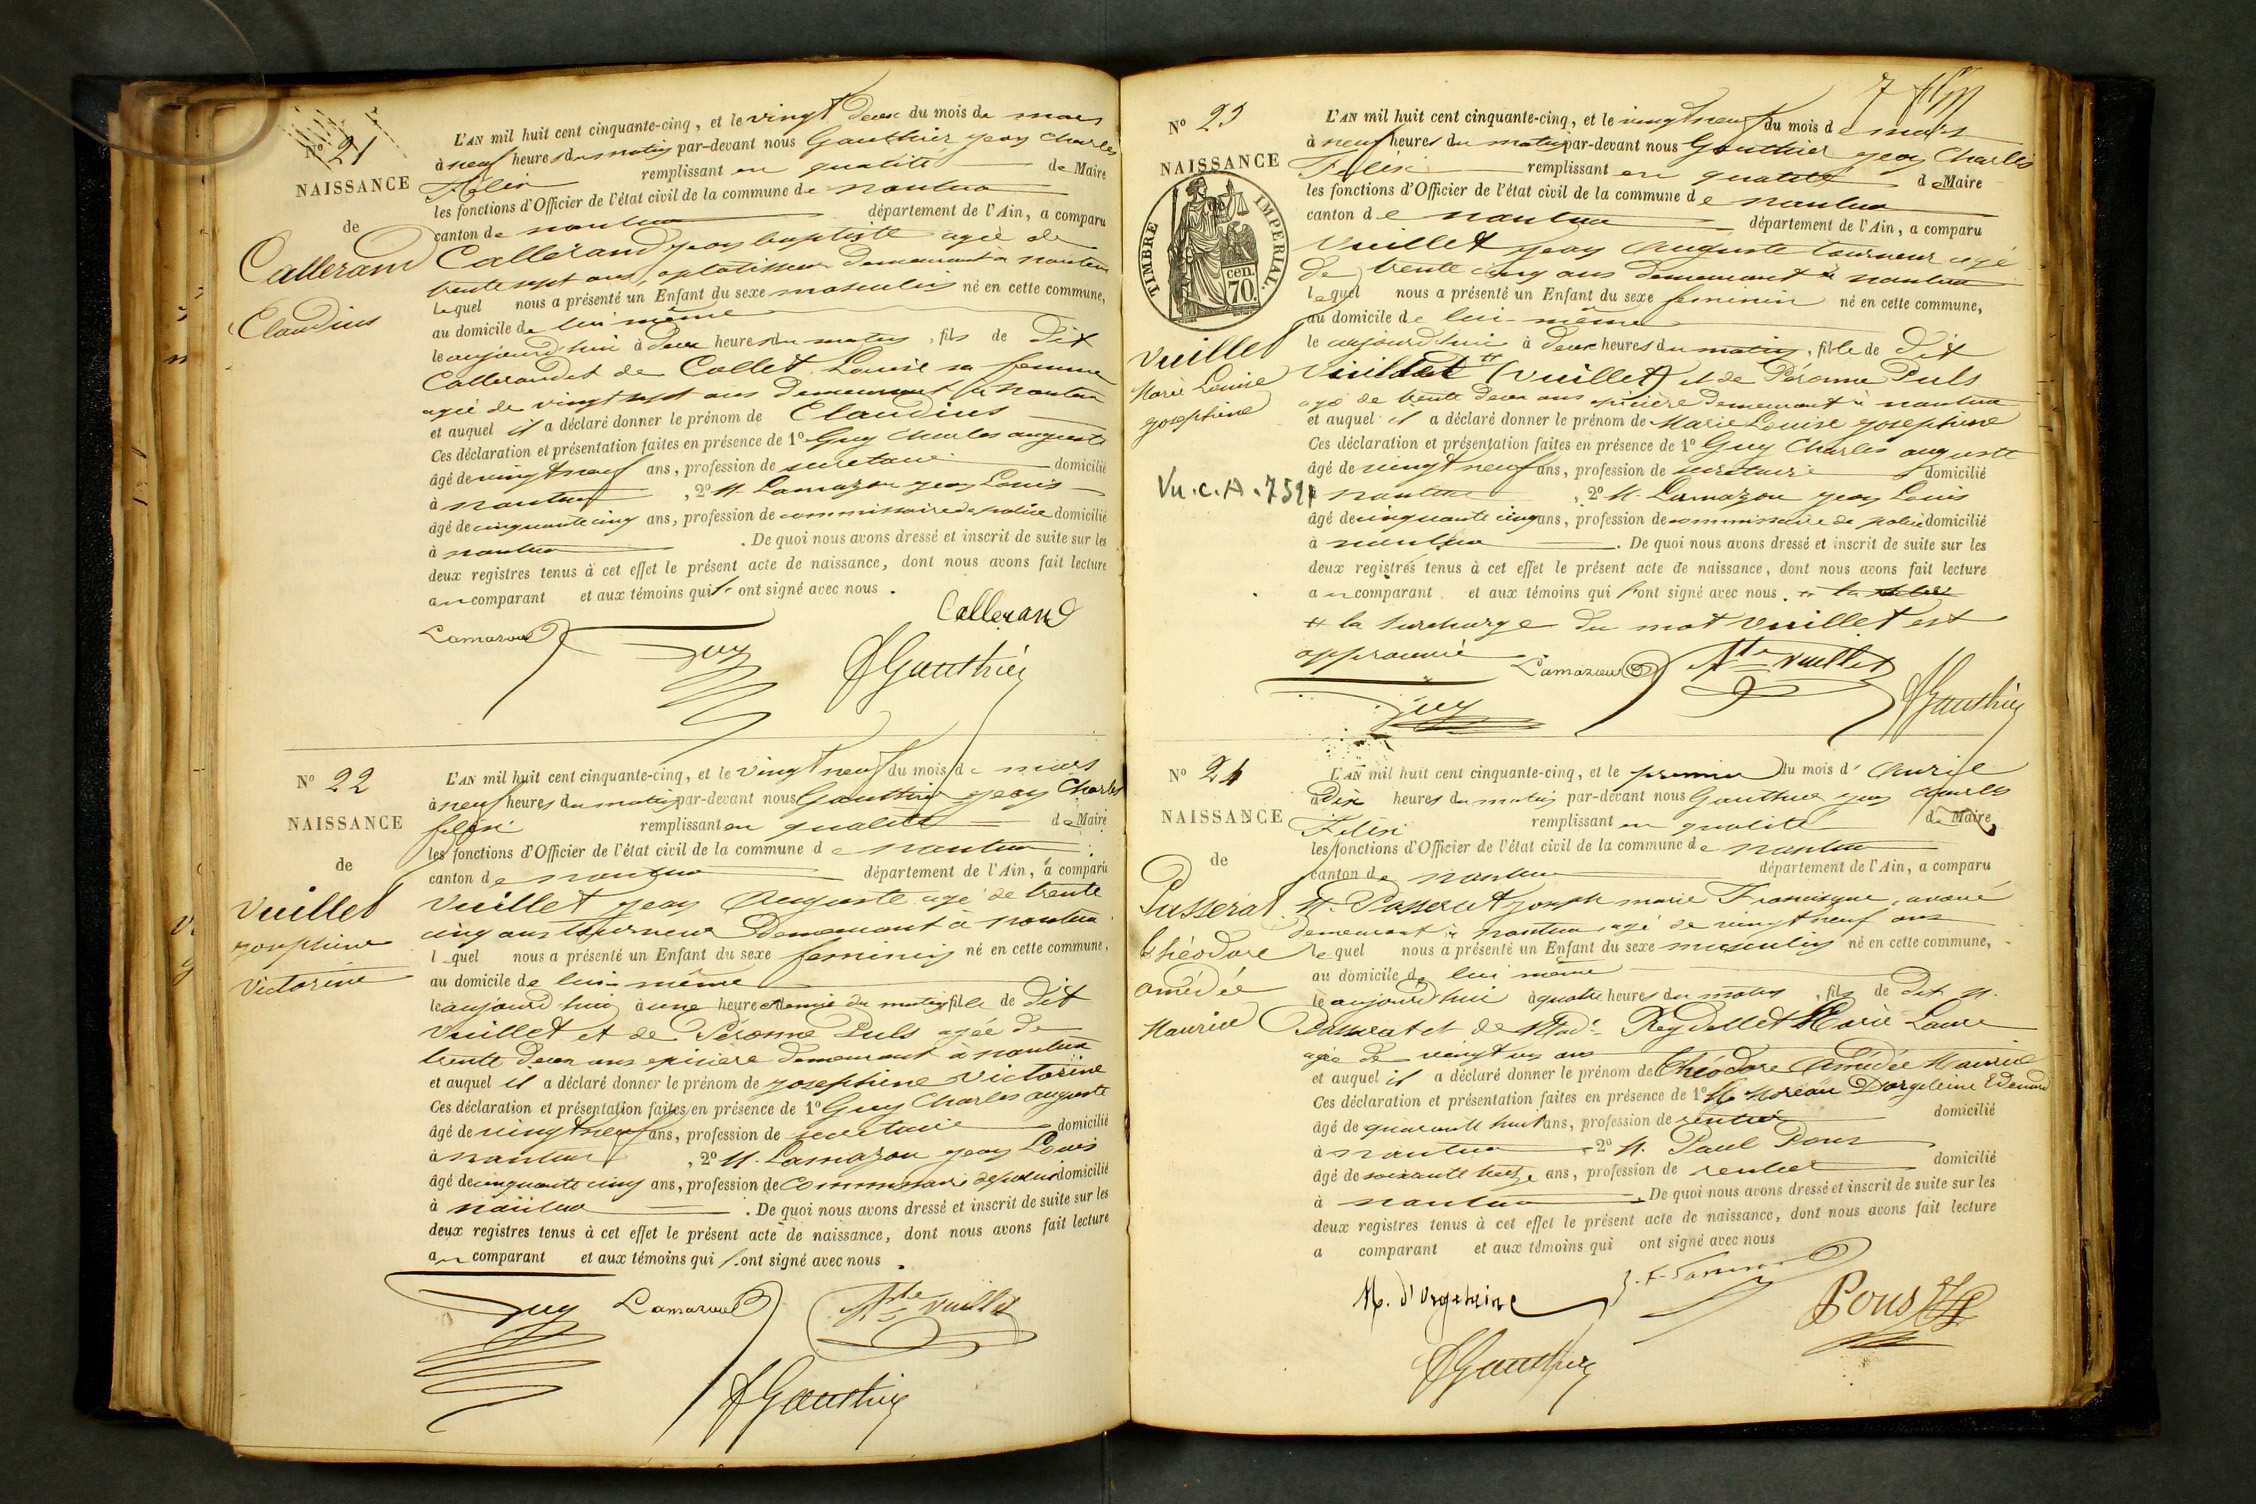 No 21
NAISSANCE
de
Callerand
Claudius
L'AN mil huit cent cinquante-cinq, et le vingt deux du mois de mars
à neuf heures du matin par-devant nous Gauthier jean Charles
Félix remplissant en qualité de Maire
les fonctions d'Officier de l'état civil de la commune de nantua
canton de nantua département de l'Ain, a comparu
Callerand jean baptiste agé de
trente sept ans, demeurant à nantua
lequel nous a présenté un Enfant du sexe masculin né en cette commune,
au domicile de lui même
le aujourd'hui à deux heures du matin, fils de dit
Callerand et de Collet Louise sa femme
agée de vingt sept ans demeurant à nantua
et auquel il a déclaré donner le prénom de Claudius
Ces déclaration et présentation faites en présence de 1o Guy Charles auguste
âgé de vingt neuf ans, profession de secretaire domicilié
à nantua, 2o M. Lamazou jean Louis
âgé de cinquante cinq ans, profession de commissaire de police domicilié
à nantua. De quoi nous avons dressé et inscrit de suite sur les
deux registres tenus à cet effet le présent acte de naissance, dont nous avons fait lecture
au comparant et aux témoins qui ont signé avec nous.
Callerand
Lamazou Guy Gauthier
No 22
NAISSANCE
de
Vuillet
josephine
Victorine
L'AN mil huit cent cinquante-cinq, et le vingt neuf du mois de mars
à neuf heures du matin par-devant nous Gauthier jean Charles
felix remplissant en qualité de Maire
les fonctions d'Officier de l'état civil de la commune de nantua
canton de nantua département de l'Ain, a comparu
Vuillet jean Auguste agé de trente
cinq ans tourneur demeurant à nantua
lequel nous a présenté un Enfant du sexe feminin né en cette commune,
au domicile de lui-même
le aujourd'hui à une heure et demie du matin fille de dit
Vuillet et de Péronne Puls agée de
trente deux ans epicière demeurant à nantua
et auquel il a déclaré donner le prénom de josephine Victorine
Ces déclaration et présentation faites en présence de 1o Guy Charles auguste
âgé de vingt neuf ans, profession de secretaire domicilié
à nantua, 2o M. Lamazou jean Louis
âgé de cinquante cinq ans, profession de Commissaire de police domicilié
à nantua. De quoi nous avons dressé et inscrit de suite sur les
deux registres tenus à cet effet le présent acte de naissance, dont nous avons fait lecture
au comparant et aux témoins qui ont signé avec nous.
Guy Lamazou Vuillet
Gauthier
No 23
NAISSANCE
TIMBRE IMPERIAL
cen.
70.
Vuillet
Marie Louise
josephine
Vu.c.A.
L'AN mil huit cent cinquante-cinq, et le vingt neuf du mois de mars
à neuf heures du matin par-devant nous Gauthier jean Charles
Felix remplissant en qualité de Maire
les fonctions d'Officier de l'état civil de la commune de nantua
canton de nantua département de l'Ain, a comparu
Vuillet jean Auguste tourneur agé
de trente cinq ans demeurant à nantua
lequel nous a présenté un Enfant du sexe feminin né en cette commune,
au domicile de lui-même
le aujourd'hui à deux heures du matin, fille de dit
Vuillet (Vuillet) et de Péronne Puls
agé de trente deux ans epicière demeurant à nantua
et auquel il a déclaré donner le prénom de Marie Louise josephine
Ces déclaration et présentation faites en présence de 1o Guy Charles auguste
âgé de vingt neuf ans, profession de secretaire domicilié
à nantua, 2o M. Lamazou jean Louis
âgé de cinquante cinq ans, profession de commissaire de police domicilié
à nantua. De quoi nous avons dressé et inscrit de suite sur les
deux registres tenus à cet effet le présent acte de naissance, dont nous avons fait lecture
au comparant et aux témoins qui ont signé avec nous.
la surcharge du mot Vuillet est
approuvée Lamazou Vuillet
Guy Gauthier
No 24
NAISSANCE
de
Passerat
théodore
amédée
Maurice
L'AN mil huit cent cinquante-cinq, et le premier du mois d'Avril
à Dix heures du matin par-devant nous Gauthier jean Charles
Félix remplissant en qualité de Maire
les fonctions d'Officier de l'état civil de la commune de nantua
canton de nantua département de l'Ain, a comparu
M. Passerat joseph marie Francisque, avoué
demeurant à nantua agé de vingt neuf ans
lequel nous a présenté un Enfant du sexe masculin né en cette commune,
au domicile de lui même
le aujourd'hui à quatre heures du matin, fils de dit M.
Passerat et de Mad. Reydellet Marie Laure
agée de vingt un ans
et auquel il a déclaré donner le prénom de théodore Amédée Maurice
Ces déclaration et présentation faites en présence de 1o M. Moréau D'orgeleine Edouard
âgé de quarante huit ans, profession de rentier domicilié
à nantua, 2o M. Paul Pons
âgé de soixante treize ans, profession de rentier domicilié
à nantua. De quoi nous avons dressé et inscrit de suite sur les
deux registres tenus à cet effet le présent acte de naissance, dont nous avons fait lecture
a comparant et aux témoins qui ont signé avec nous
M. d'Orgeleine Pons
Gauthier